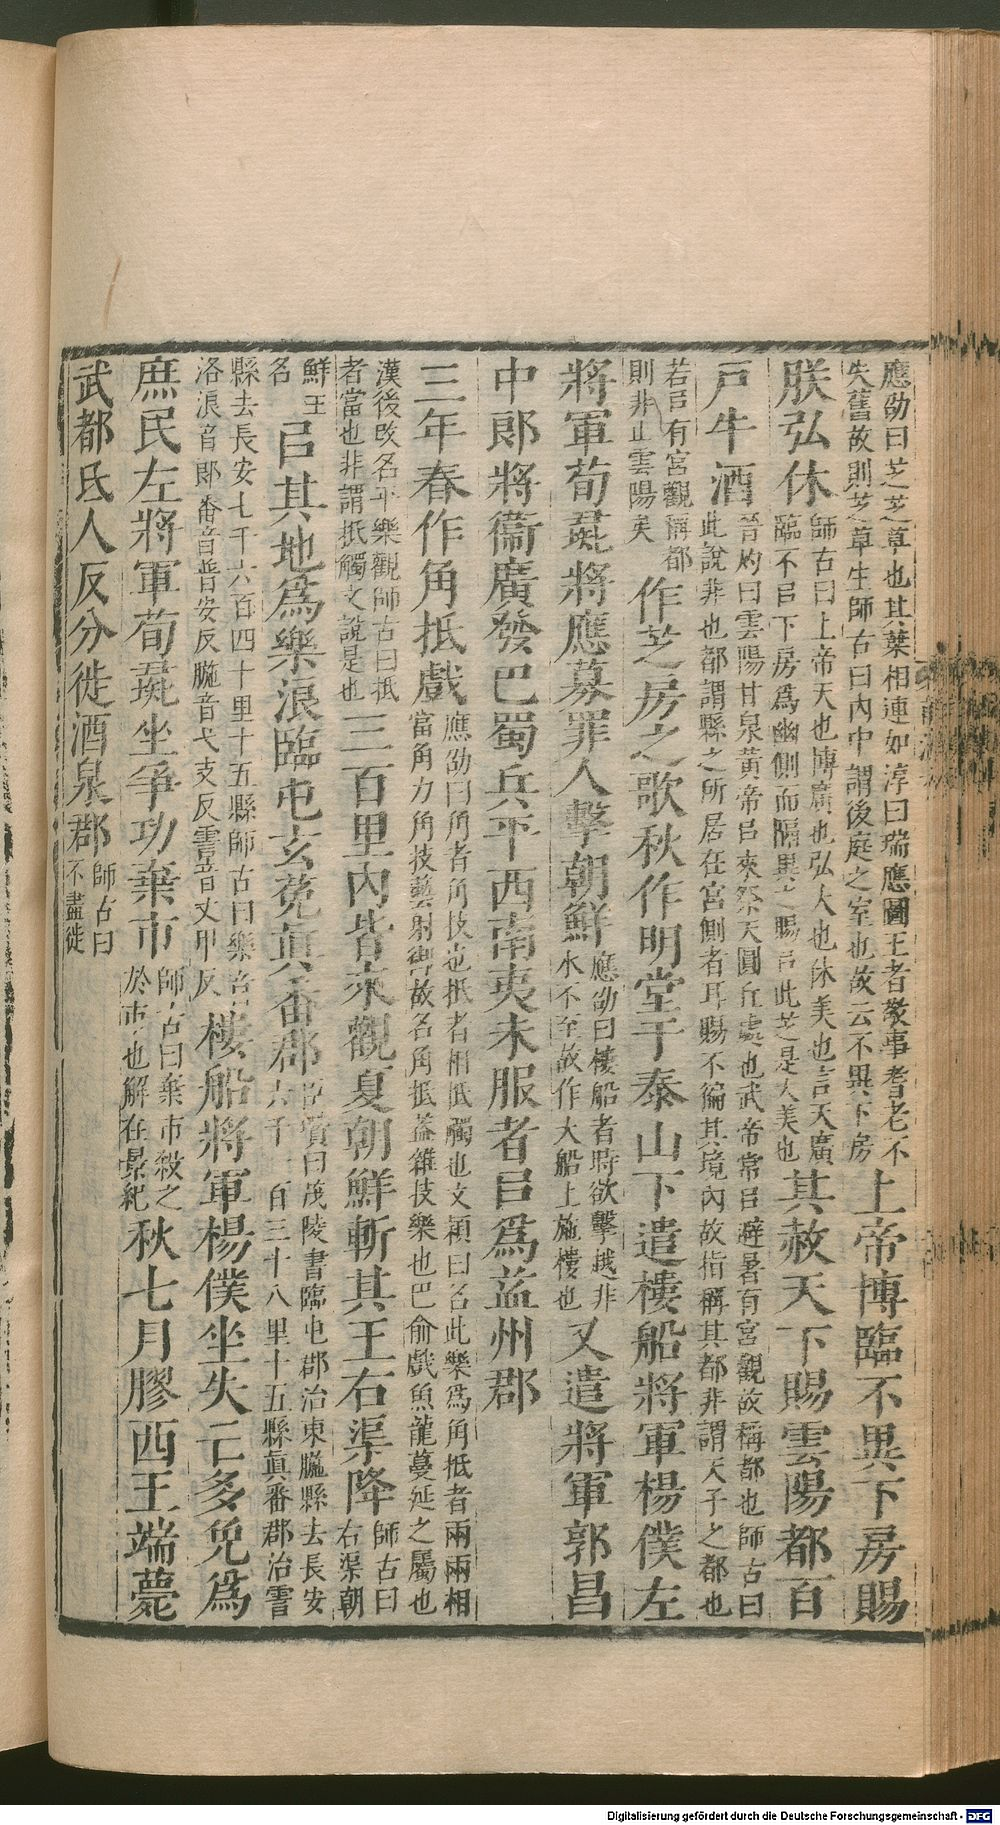 應劭曰芝芝草也其葉相連如淳曰瑞應圖王者敬事耆老不失舊故則芝草生師古曰內中謂後庭之室也故云不異下房上帝博臨不異下房賜
朕弘休師古曰上帝天也博廣也弘大也休美也言天廣臨不㠯下房爲幽側而隔異之賜㠯此芝是大美也其赦天下賜雲陽都百
戸牛酒晉灼曰雲陽甘泉黃帝㠯來祭天圓丘處也武帝常㠯避暑有宮觀故稱都也師古曰此說非也都謂縣之所居在宮側者耳賜不徧其境內故指稱其都非謂天子之都也
若㠯有宮觀稱都則非止雲陽矣作芝房之歌秋作明堂于泰山下遣樓船將軍楊僕左
將軍荀彘將應募罪人擊朝鮮應劭曰樓船者時欲擊越非水不至故作大船上施樓也又遣將軍郭昌
中郎將衞廣發巴蜀兵平西南夷未服者㠯爲益州郡
三年春作角抵戲應劭曰角者角技也抵者相抵觸也文穎曰名此樂爲角抵者兩兩相當角力角技藝射御故名角抵蓋雜技樂也巴俞戲魚龍蔓延之屬也
漢後改名平樂觀師古曰抵者當也非謂抵觸文說是也三百里內皆來觀夏朝鮮斬其王右渠降師古曰右渠朝
鮮王名㠯其地爲樂浪臨屯玄菟眞番郡臣瓚曰茂陵書臨屯郡治東暆縣去長安六千一百三十八里十五縣眞番郡治霅
縣去長安七千六百四十里十五縣師古曰樂音洛浪音郎番音普安反暆音弋支反霅音丈甲反樓船將軍楊僕坐失亡多免爲
庶民左將軍荀彘坐爭功棄市師古曰棄市殺之於市也解在景紀秋七月膠西王端薨
武都氐人反分徙酒泉郡師古曰不盡徙
Digitalisierung gefördert durch die Deutsche Forschungsgemeinschaft - DFG